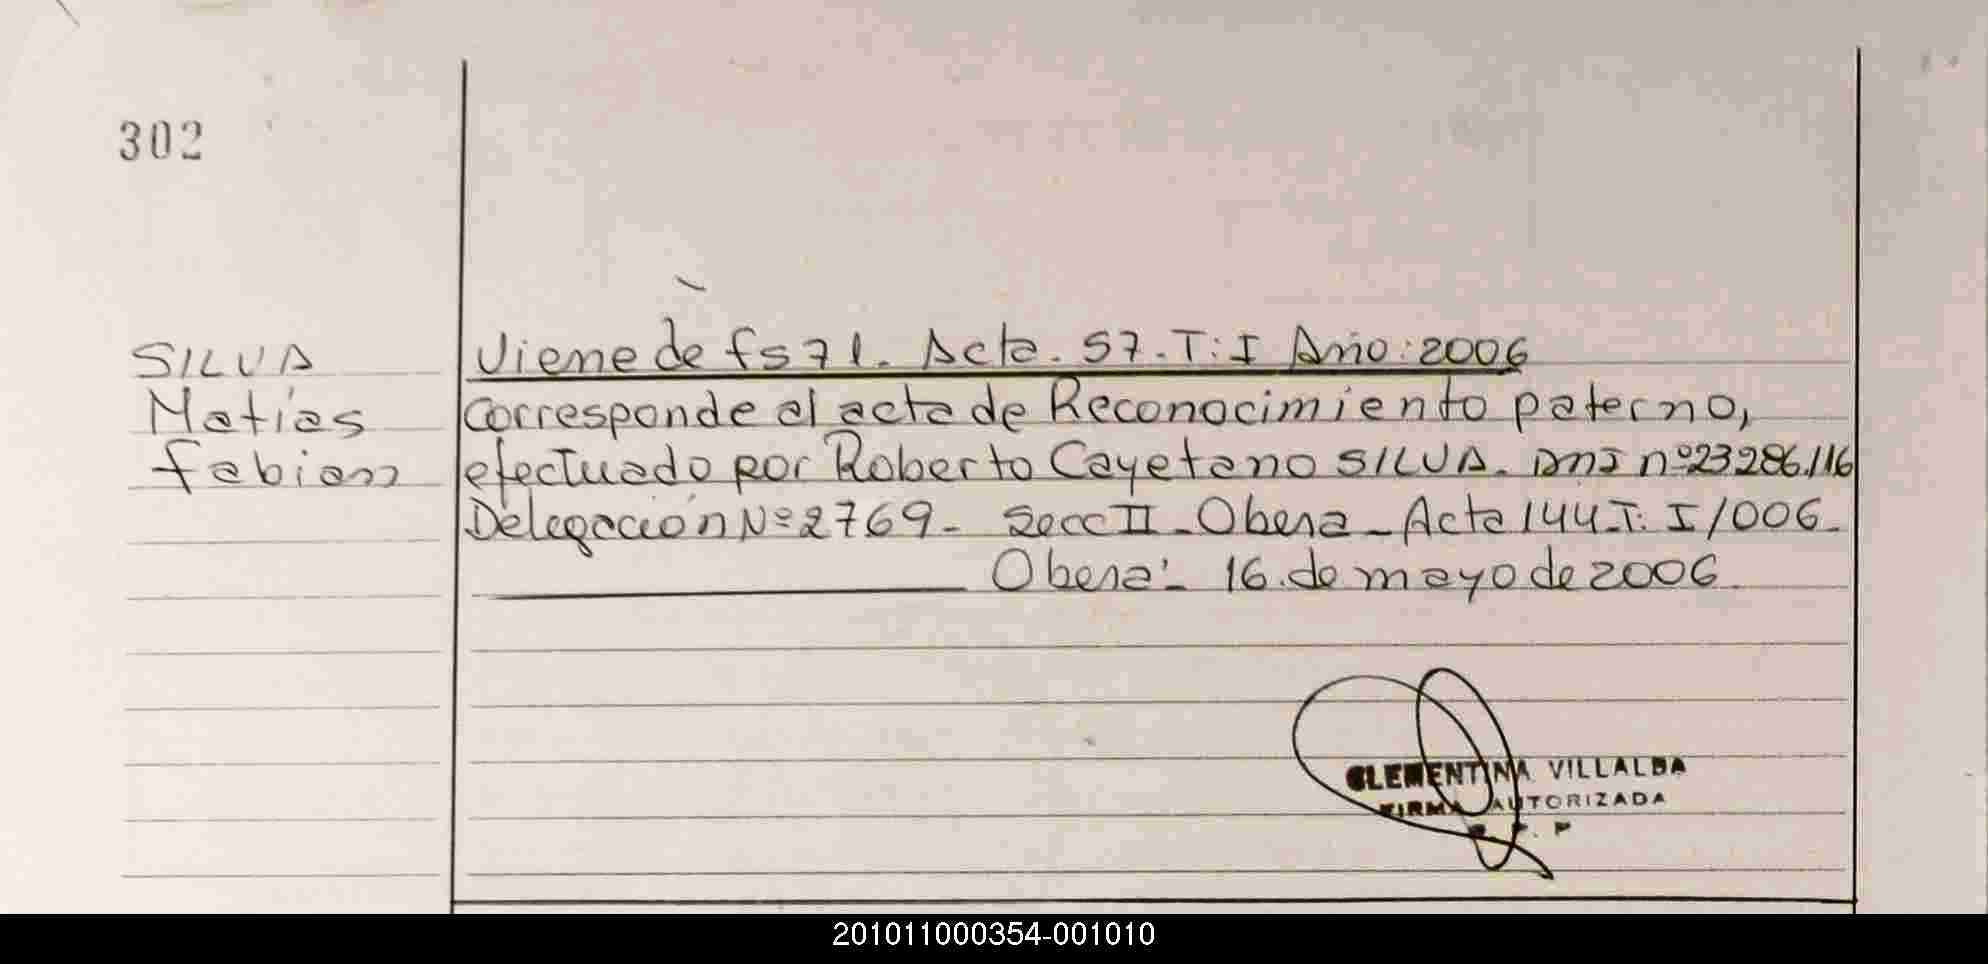 302
SILVA
Matías
fabian
Viene de fs 71. Acta. 57. T: I Año: 2006
Corresponde al acta de Reconocimiento paterno,
efectuado por Roberto Cayetano SILVA. DNI nº 23.286.116
Delegación Nº 2769 - Secc II - Obera - Acta 144. T: I/006.
Obera: 16 de mayo de 2006
CLEMENTINA VILLALBA
FIRMA AUTORIZADA
201011000354-001010